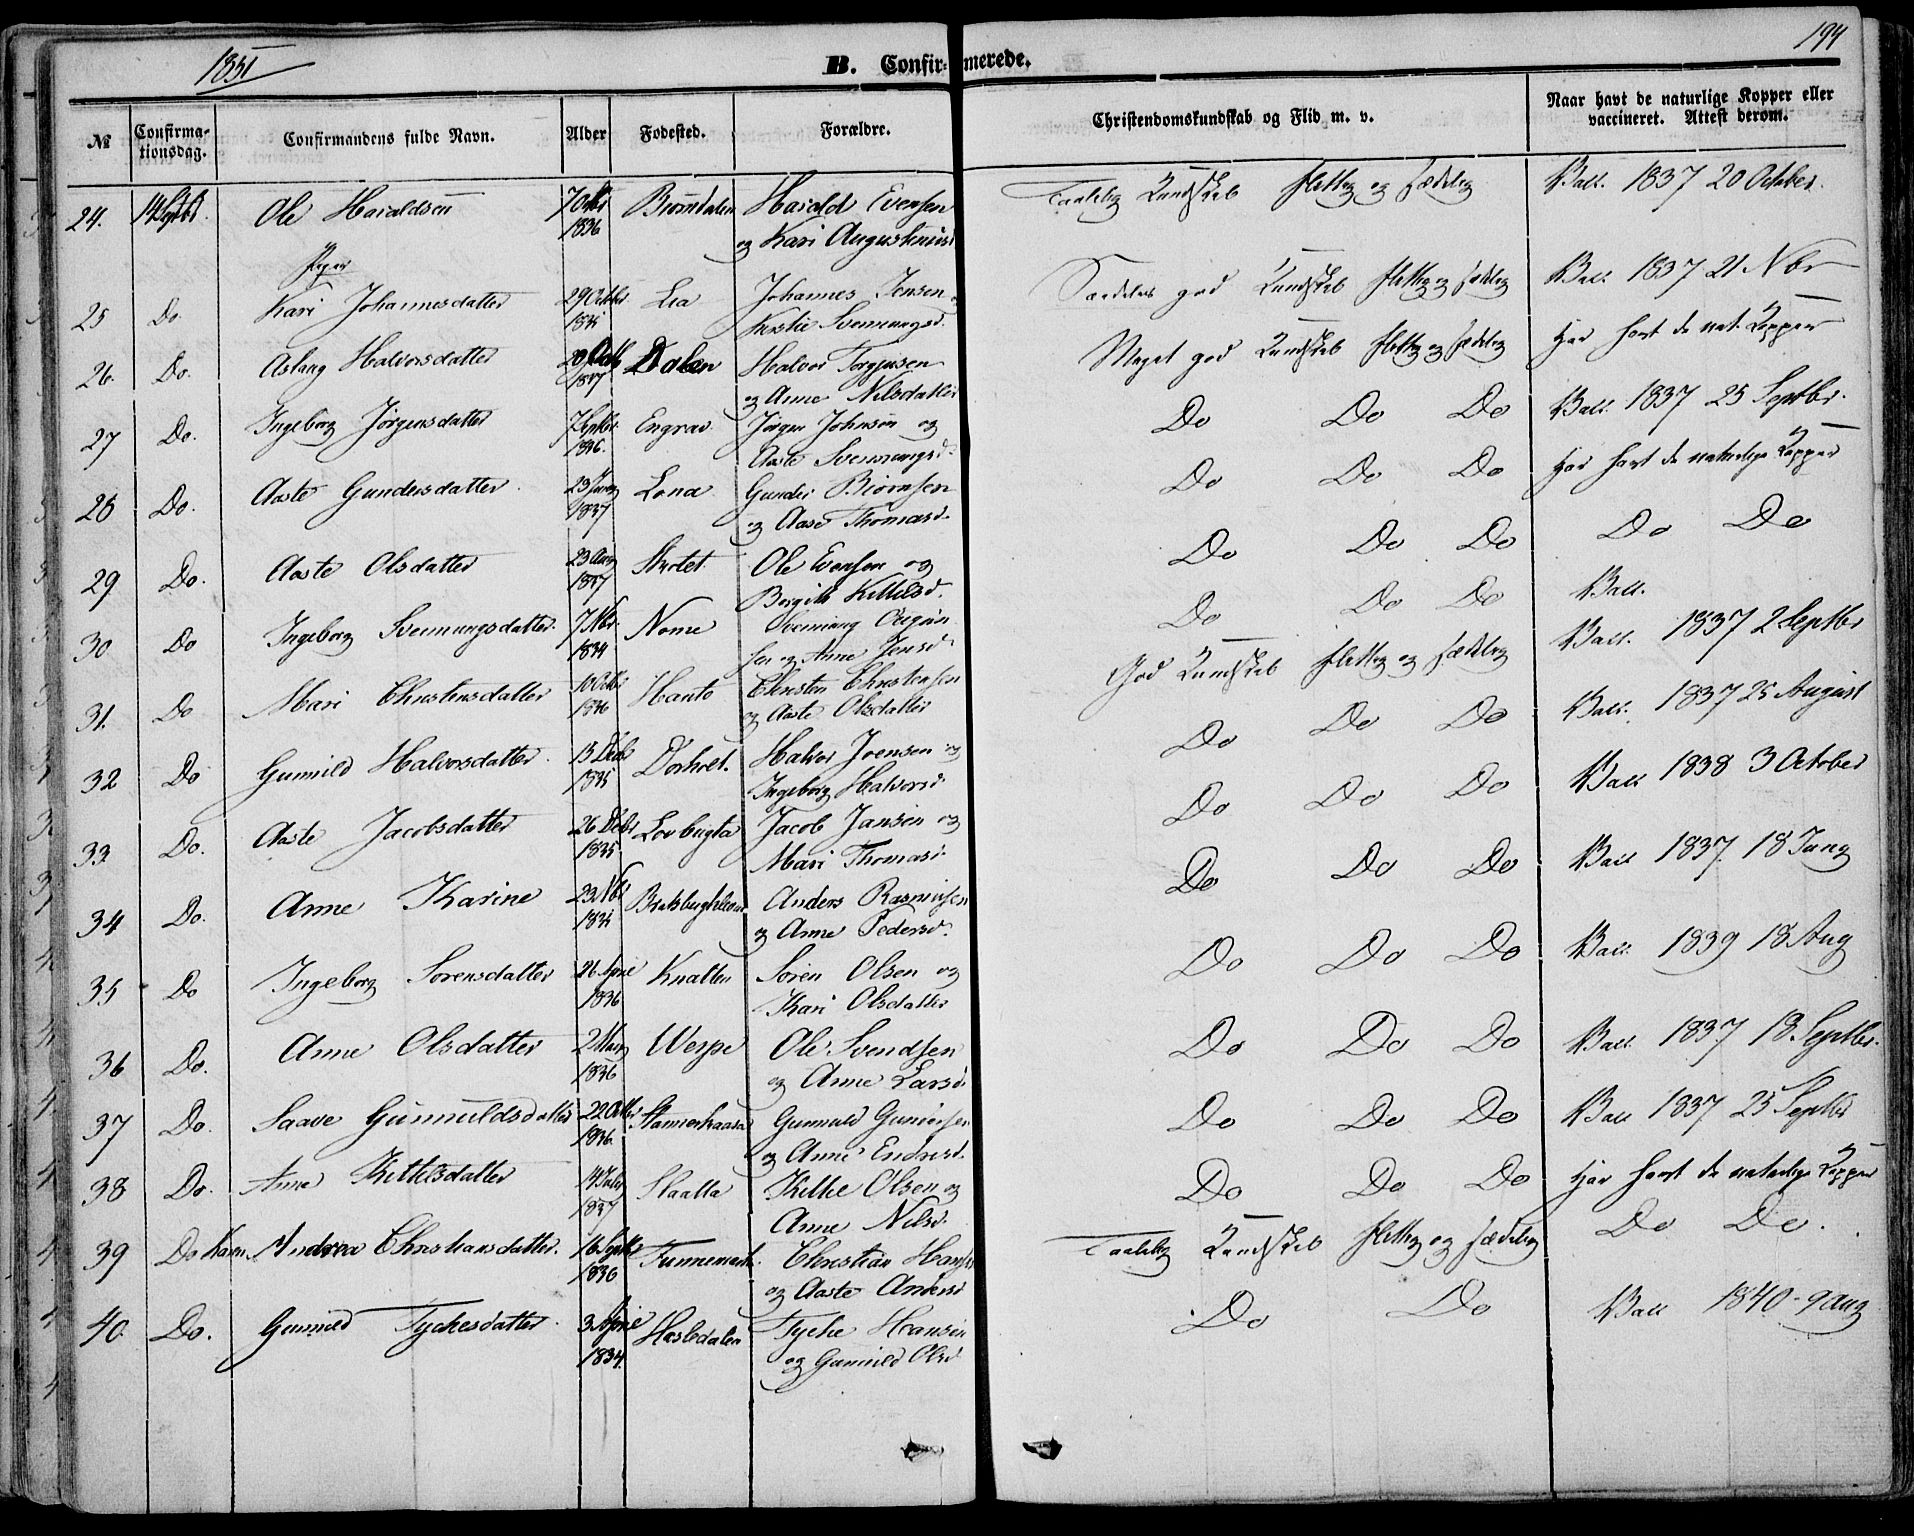 1851
B. Confirmerede.
194
№
Confirma-
tionsdag.
Confirmandens fulde Navn.
Alder
Fødested.
Forældre.
Christendomskundskab og Flid m. v.
Naar havt de naturlige Kopper eller
vaccineret. Attest derom.
24. 14 Septbr. Ole Haraldsen 7 Octbr Biørndalen Harald Evensen Taalelig Kundskab flittig og sædelig Vacc. 1837 20 October.
1836 og Kari Augustinusd
Piger
25 Do. Kari Johannesdatter 29 Octbr Lia Johannes Jensen Særdeles god Kundskab flittig og sædelig Vacc. 1837 21 Nbr
1835 Kirstie Svenningsd.
26. Do. Aslaug Halvorsdatter 1837 Dalen Halvor Torgjusen Meget god Kundskab flittig og sædelig Har havt de nat. Kopper
og Anne Nilsdatter
27 Do. Ingeborg Jørgensdatter 7 Septbr Engrav Jørgen Johnsen og Do Do Do Vacc. 1837 25 Septbr.
1836. Aaste Svenningsd.
28 Do. Aaste Gundersdatter 23 Lona Gunder Biørnsen Do Do Do Har havt de naturlige Kopper
1837 og Aase Thomasd.
29 Do. Aaste Olsdatter 23 Ole Evensen og Do Do Do Do Do
1837 Borgith Kittilsd.
30 Do Ingeborg Svenningsdatter. 7 Nbr. Nome Svenning Do Do Do Vacc.
1834 sen og Anne Jensd.
31. Do Mari Christensdatter 10 Octbr Hauto Christen Christensen God Kundskab flittig og sædelig Vacc. 1837 2 Septbr
1836 og Aaste Olsdatter
32 Do Gunnild Halvorsdatter. 13 Decbr Dorholt. Halvor Joensen og Do Do Do Vacc. 1837 25 August
1835 Ingeborg Halvorsd
33. Do. Aaste Jacobsdatter 26 Debr Lovbugta Jacob Jansen og Do Do Do Vacc 1838 3 October
1835 Mari Thomasd.
34 Do. Anne Karine 23 Nbr Anders Rasmussen Do Do Do Vacc 1837 18 Juny
1835 og Anne Pedersd.
35 Do Ingeborg Sørensdatter 26 April Knatten Søren Olsen og Do Do Do Vacc. 1839 18 Aug
1836 Kari Olsdatter
36 Do. Anne Olsdatter 2 Werpe Ole Svendsen Do Do Do Vacc. 1837 18 Septbr.
1836 og Anne Larsd.
37 Do. Saave Gunnuldsdatter 22 Octbr Gunnuld Do Do Do Vacc 1837 25 Septbr
1836. og Anne Endresd.
38 Do. Anne Kittilsdatter 14 Slaatta Kittil Olsen og Do Do Do Har havt de naturlige Kopper
1837 Anne Nilsd.
39 Do Karen Andrea Christiansdatter. 16 Septbr Funnemark. Christian Hansen Taalelig Kundskab flittig og sædelig Do Do.
1836 og Aaste Andersd
40. Do. Gunnild Tyckesdatter. 3 April Hasledalen Tycke Hansen Do Do Vacc 1840 - 9 Aug
1834. og Gunnild Olsd